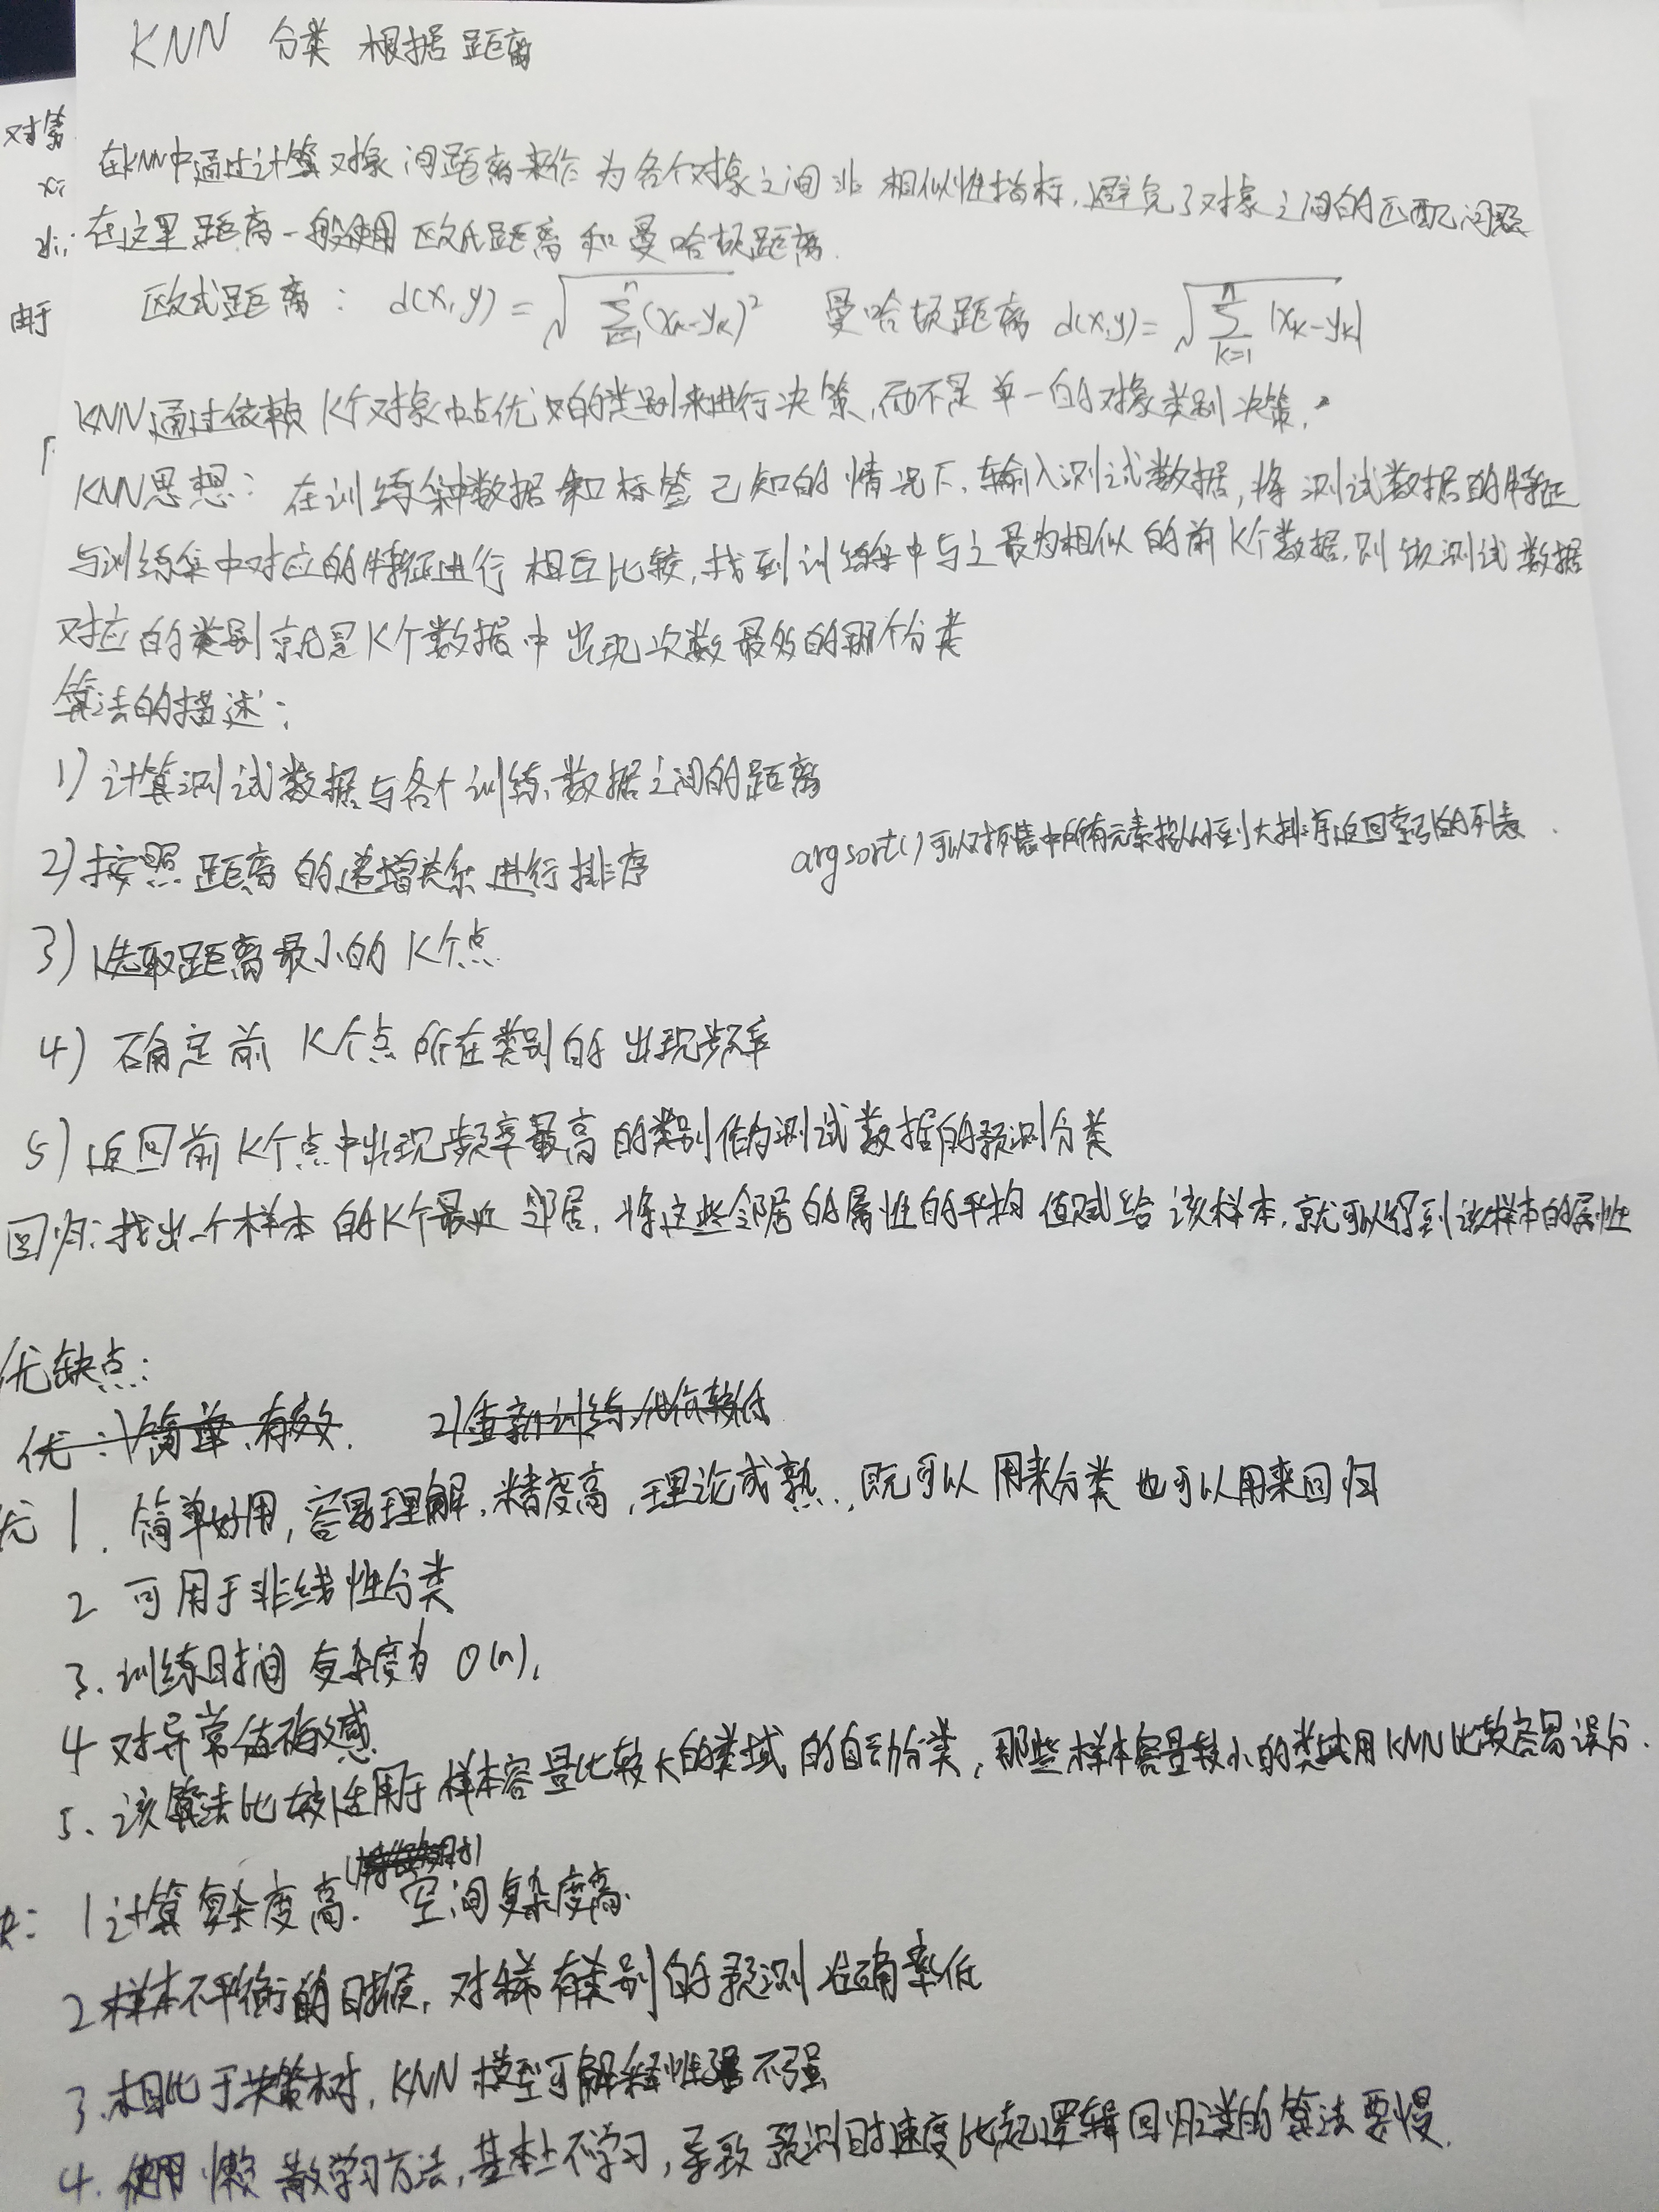 KNN 分类 根据距离
对第
xi
在KNN中通过计算对象间距离来作为各个对象之间非相似性指标,避免了对象之间的匹配问题
yi,
在这里距离一般使用欧氏距离和曼哈顿距离.
由于
欧式距离: d(x,y)=√∑(xₖ-yₖ)² 曼哈顿距离 d(x,y)=√∑|xₖ-yₖ|
n k=1 n k=1
KNN通过依赖K个对象中占优势的类别来进行决策,而不是单一的对象类别决策.
KNN思想: 在训练集中数据和标签已知的情况下,输入测试数据,将测试数据的特征
与训练集中对应的特征进行相互比较,找到训练集中与之最为相似的前K个数据,则该测试数据
对应的类别就是K个数据中出现次数最多的那个分类
算法的描述:
1) 计算测试数据与各个训练数据之间的距离
2) 按照距离的递增关系进行排序
argsort()可以对列表中所有元素按从小到大排序返回索引的列表.
3) 选取距离最小的K个点
4) 确定前K个点所在类别的出现频率
5) 返回前K个点中出现频率最高的类别作为测试数据的预测分类
回归:找出一个样本的K个最近邻居,将这些邻居的属性的平均值赋给该样本,就可以得到该样本的属性
优缺点:
优:1)简单、有效. 2)重新训练代价较低
优 1. 简单好用,容易理解,精度高,理论成熟,既可以用来分类也可以用来回归
2 可用于非线性分类
3. 训练时间复杂度为O(n),
4 对异常值不敏感
5、该算法比较适用于样本容量比较大的类域的自动分类,那些样本容量较小的类域用KNN比较容易误分.
缺: 1 计算复杂度高. 空间复杂度高.
2 样本不平衡的时候,对稀有类别的预测准确率低
3. 相比于决策树,KNN模型可解释性不强
4. 使用懒散学习方法,基本上不学习,导致预测时速度比起逻辑回归之类的算法要慢.